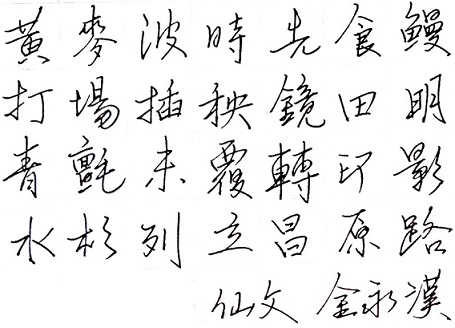 黃麥波時先食鰻
打場插秧鏡田明
青氈未覆轉印影
水杉列立昌原路
仙文 金永漢